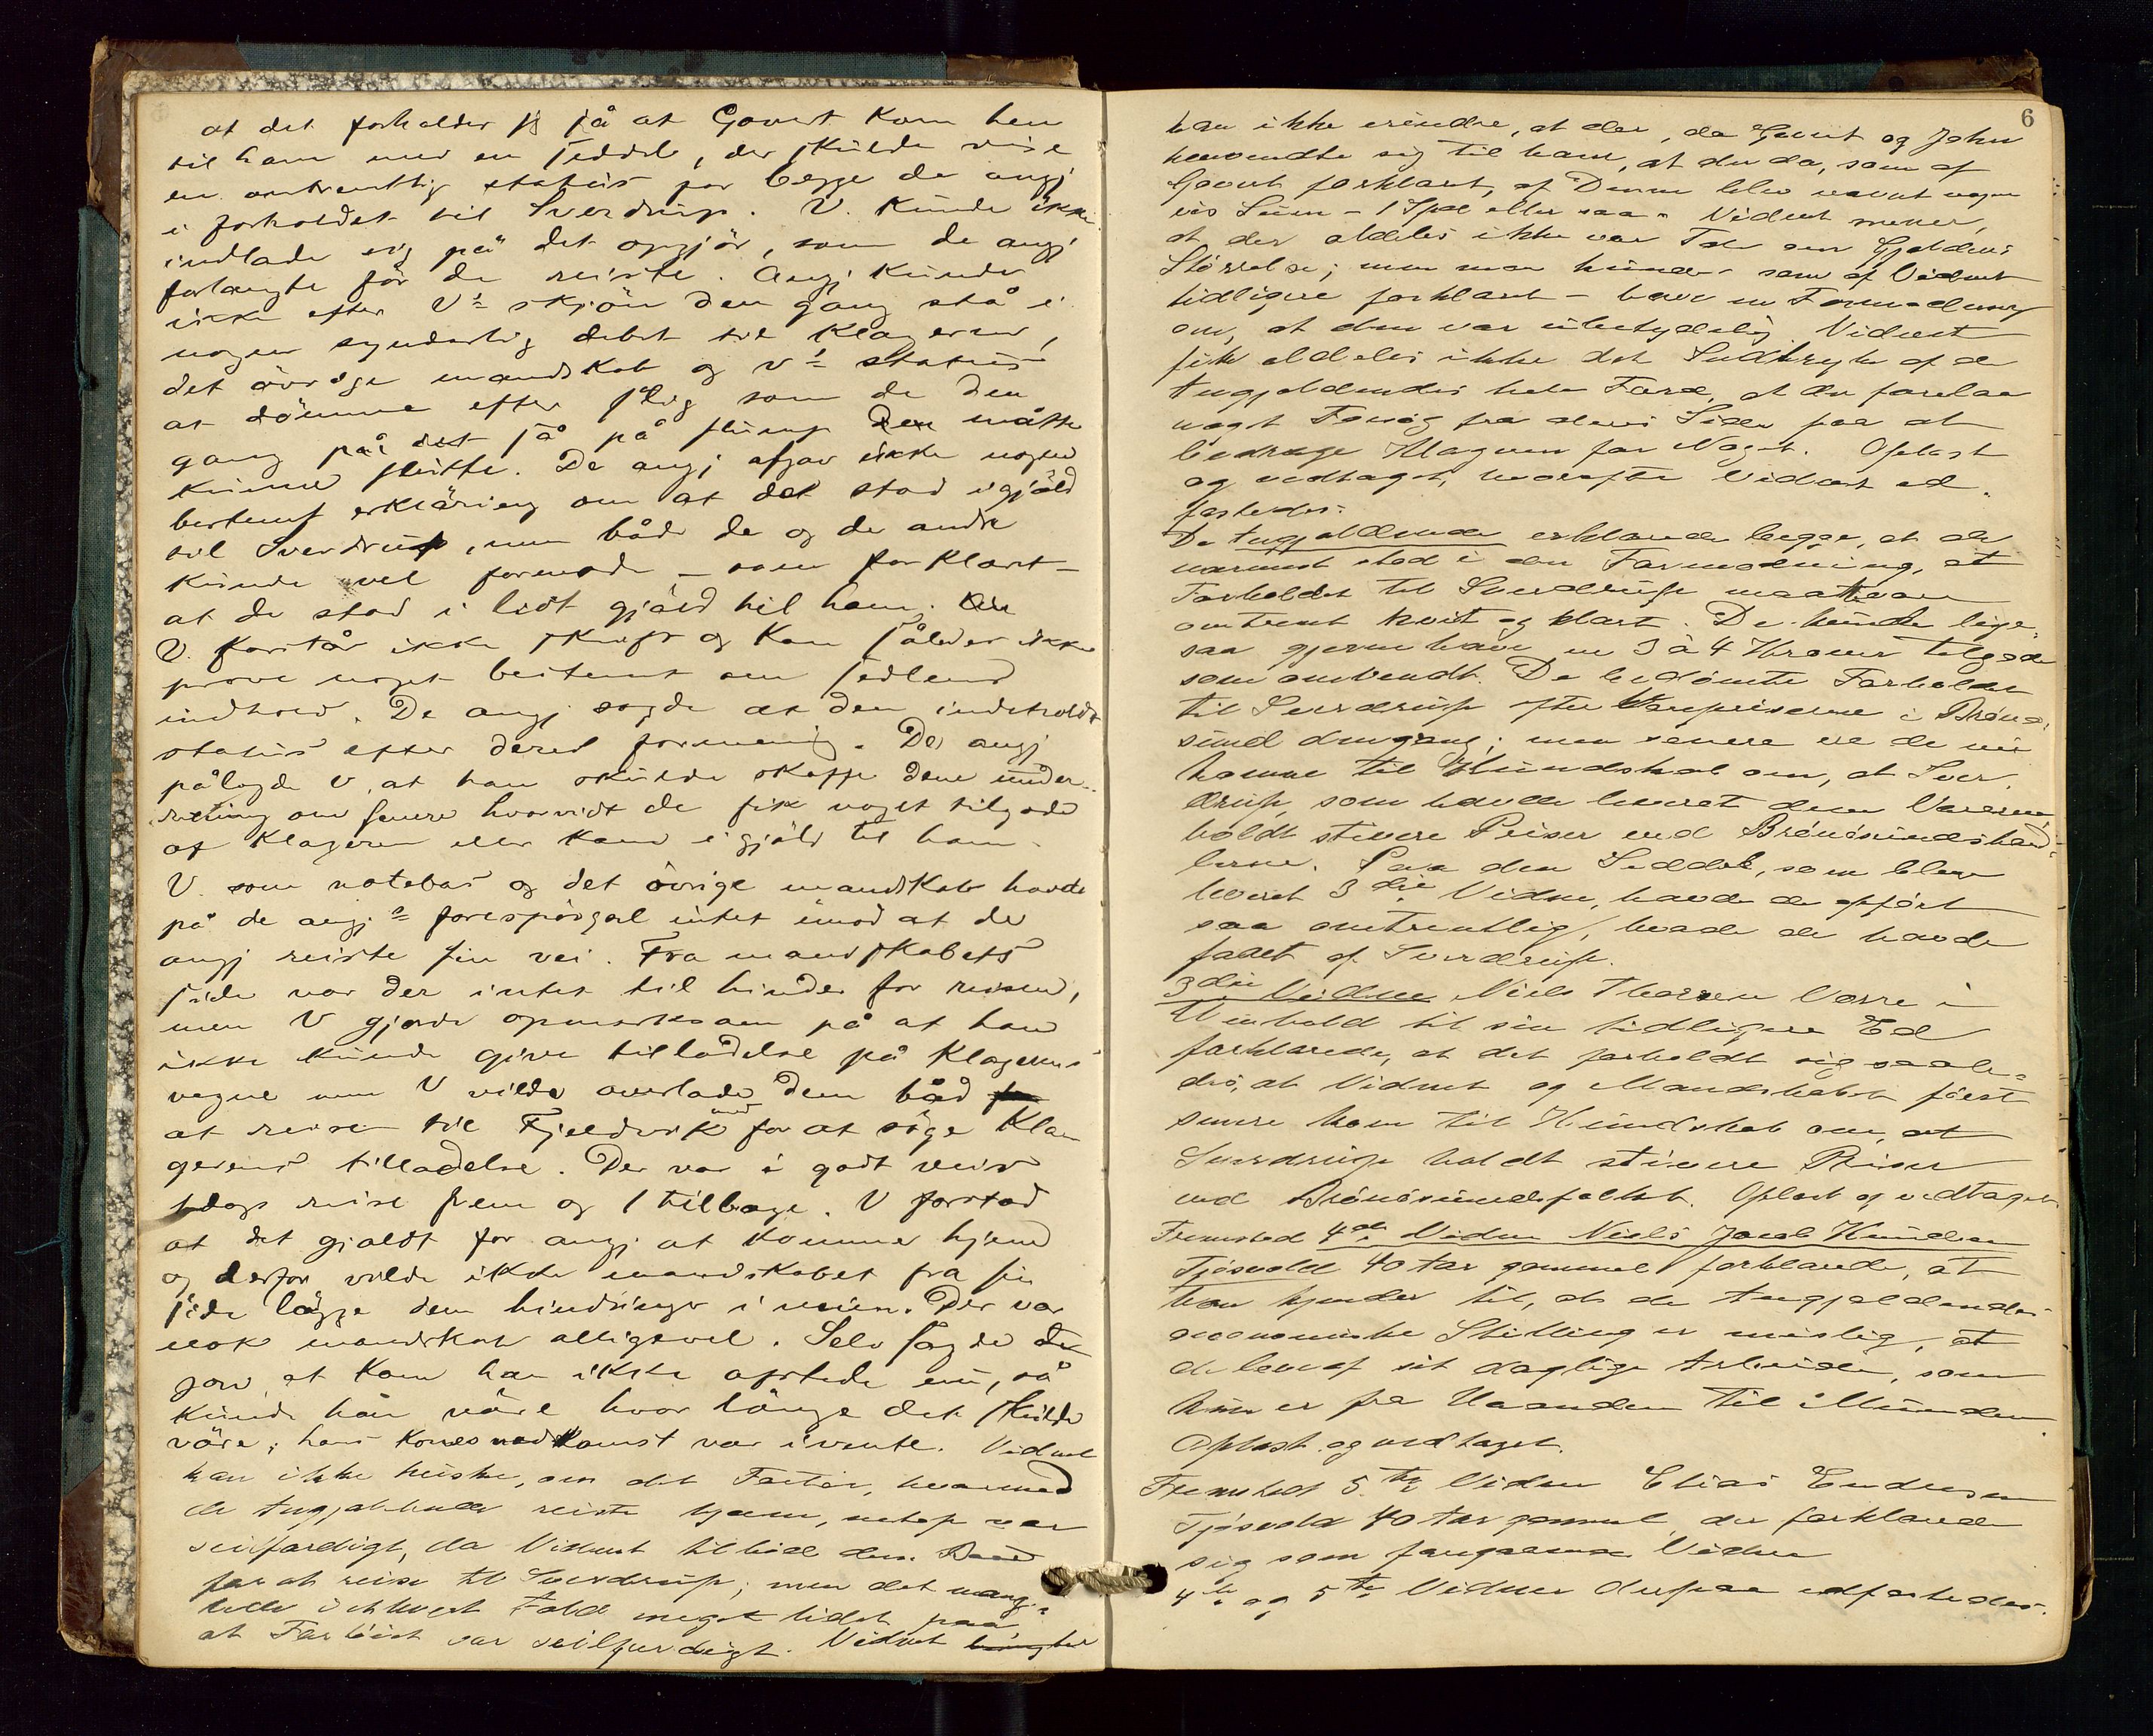 at det forholder sig så at Govert kom hen
til ham med en seddel, der skulde vise
en omtrentlig status for begge de angj
i forholdet til Sverdrup. V. kunde ikke
indlade sig på det opgjör, som de angj
forlangte för de reiste. Angj kunde
ikke efter V's skjön den gang stå i
nogen synderlig debet til klageren,
det övrige mandskab og V's status
at dömme efter slig som de den
gang på det så på slump den måtte
kunne slutte. De angj afgav ikke nogen
bestemt erkläring om at det stod i gjäld
til Sverdrup, men både de og de andre
kunde vel formode – som forklart –
at de stod i lidt gjäld til ham.
V. forstår ikke skrift og kan således ikke
prove noget bestemt om sedlens
indhold. De angj sagde at den indeholdt
status efter deres formening. De angj
pålagde V. at han skulde skaffe dem under-
retning om senere hvorvidt de fik noget tilgode
af klageren eller kom i gjäld til ham.
V. som notebas og det övrige mandskab havde
på de angj's forespörgsel intet imod at de
angj reiste sin vei. Fra mandskabets
side var der intet til hinder for reisen,
men V gjorde opmerksom på at han
ikke kunde give tilladelse på klagerens
vegne men V vilde overlade dem båd
at reise til Fjeldvik for at söge kla-
gerens tilladelse. Der var i godt veir
1 dags reise frem og 1 tilbage. V forstod
at det gjaldt for angj at komme hjem
og derfor vilde ikke mandskabet fra sin
side lägge dem hindringer i veien. Der var
nok mandskab alligevel. Selv sagde de
for, at kom han ikke afsted nu, så
kunde han väre hvor länge det skulde
väre; hans kones nedkomst var ivente. Vidnet
kan ikke huske, om det Fartöi, hvormed
de Angjældende reiste hjem, netop var
seilfærdigt, da Vidnet tilböd dem Baad
for at reise til Sverdrup; men det mang-
lede i ethvert Fald meget lidet paa,
at Fartöiet var seilfærdigt. Vidnet
kan ikke erindre, at der, da Govert og John
henvendte sig til ham, at der da, som af
Govert forklaret, af Denne blev nævnt nogen
vis Sum – 1 Spd eller saa – Vidnet mener,
at der aldeles ikke var Tale om Gjeldens
Störrelse; men man kunde – som af Vidnet
tidligere forklaret – have en Formodning
om, at den var ubetydelig. Vidnet
fik aldeles ikke det Indtryk af de
Angjældendes hele Færd, at der forelaa
noget Forsög fra deres Side paa at
bedrage Klageren for Noget. Oplæst
og vedtaget, hvorefter Vidnet ed-
fæstedes.
De Angjældende erklærede begge, at de
nærmest stod i den Formodning, at
Forholdet til Sverdrup maatte være
omtrent kvit og klart. De kunde lige-
saa gjerne have en 3 à 4 Kroner tilgode
som omvendt. De bedömte Forholdet
til Sverdrup efter Varepriserne i Brönö-
sund dengang; men senere ere de nu
komne til Kundskab om, at Sver-
drup, som havde leveret dem Varerne,
holdt stivere Priser end Brönösundshand-
lerne. Paa den Seddel, som blev
leveret 3die Vidne, havde de opfört
saa omtrentlig, hvad de havde
faaet af Sverdrup.
3die Vidne Niels Thorsen Vorre i
Henhold til sin tidligere Ed
forklarede, at det forholdt sig saale-
des, at Vidnet og Mandskabet först
senere kom til Kundskab om, at
Sverdrup holdt stivere Priser
end Brönösundsfolket. Oplæst og vedtaget.
Fremstod 4de Vidne Niels Jacob Knudsen
Tjösvold 40 Aar gammel forklarede, at
han kjender til, at de Angjældendes
oeconomiske Stilling er mislig, at
de lever af sit daglige Arbeide, som
kun er fra Haanden til Munden
Oplæst og vedtaget.
Fremstod 5te Vidne Elias Endresen
Tjösvold 40 Aar gammel, der forklarede
sig som foregaaende Vidne
4de og 5te Vidner derpaa edfæstedes.
6